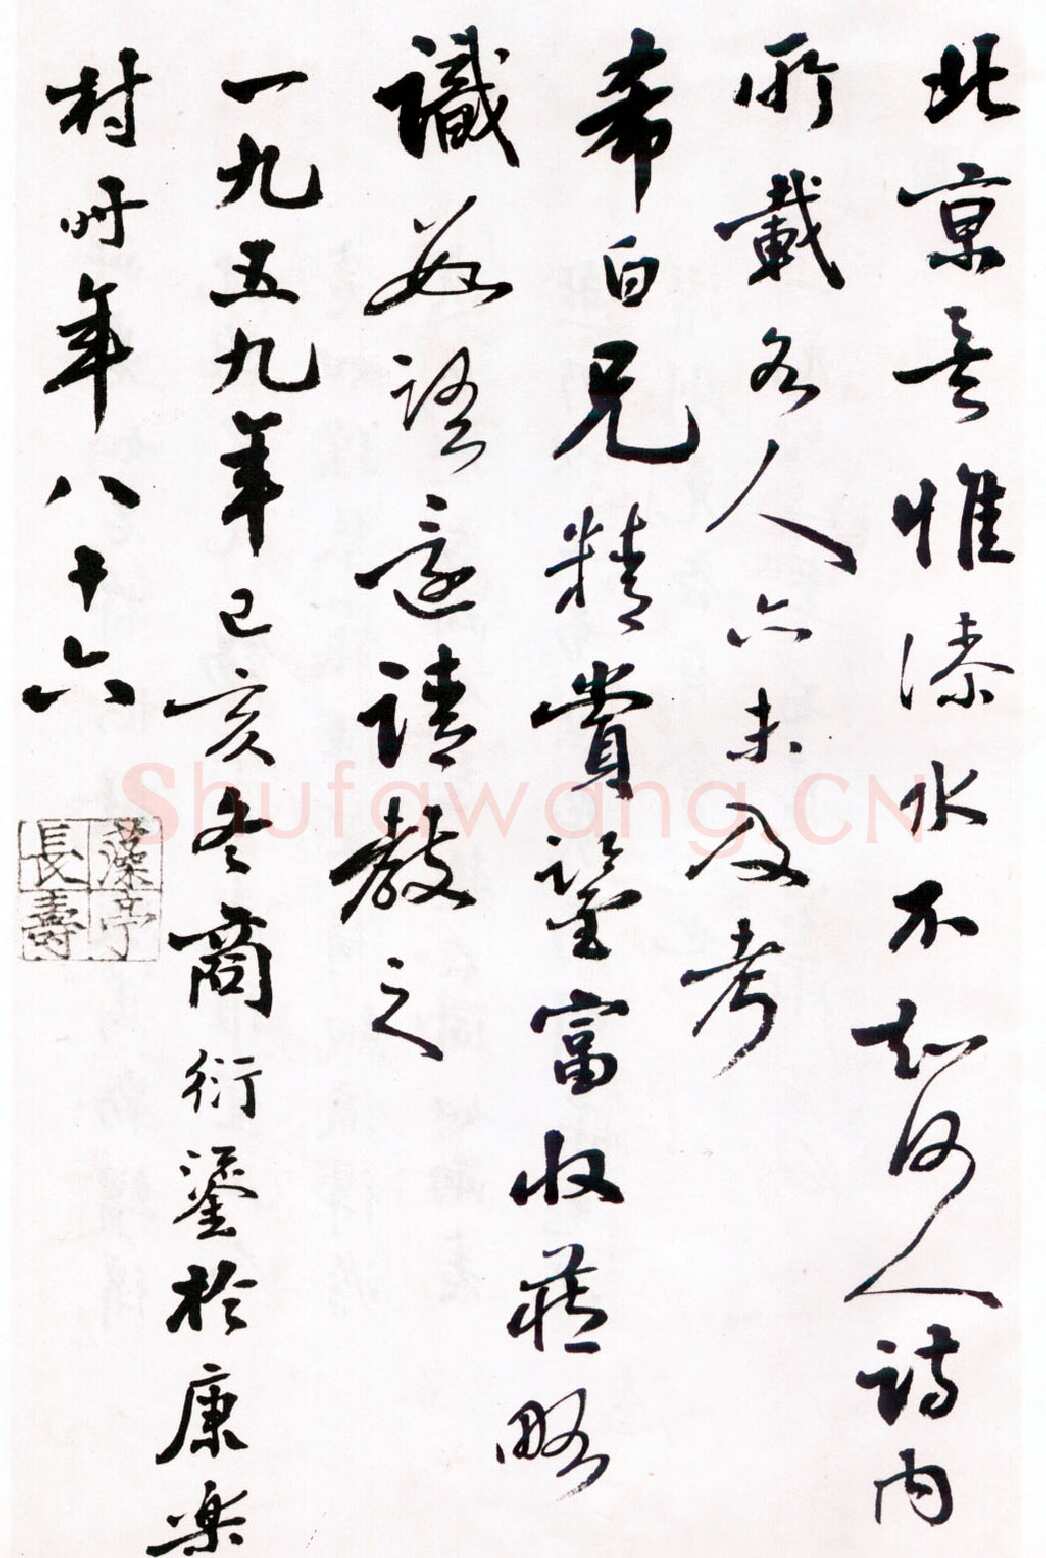 北京者惟溱水不知何人詩内
所載各人六未及考
希白兄精賞鑒富收藏略
識數語還請教之
一九五九年己亥冬商衍鎏於康樂
村时年八十六
藻亭長壽
Shufawang.CN